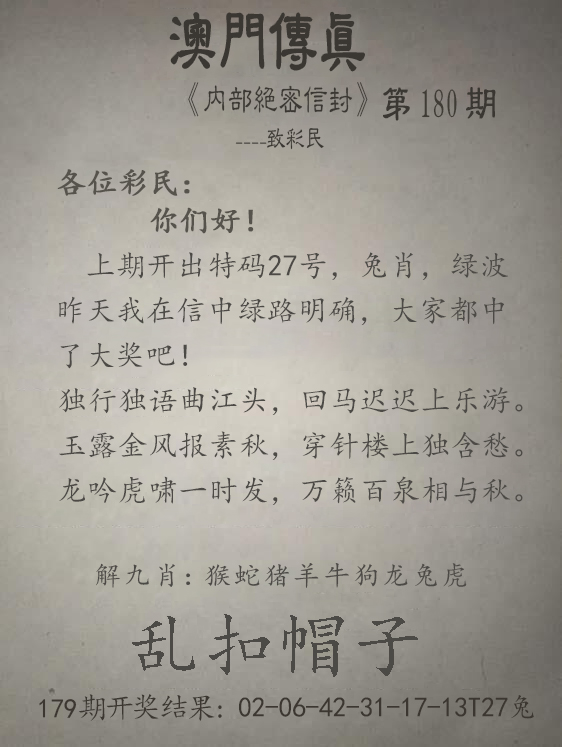 澳門傳眞
《内部絕密信封》第180期
----致彩民
各位彩民：
你们好！
上期开出特码27号，兔肖，绿波
昨天我在信中绿路明确，大家都中
了大奖吧！
独行独语曲江头，回马迟迟上乐游。
玉露金风报素秋，穿针楼上独含愁。
龙吟虎啸一时发，万籁百泉相与秋。
解九肖：猴蛇猪羊牛狗龙兔虎
乱扣帽子
179期开奖结果：02-06-42-31-17-13T27兔